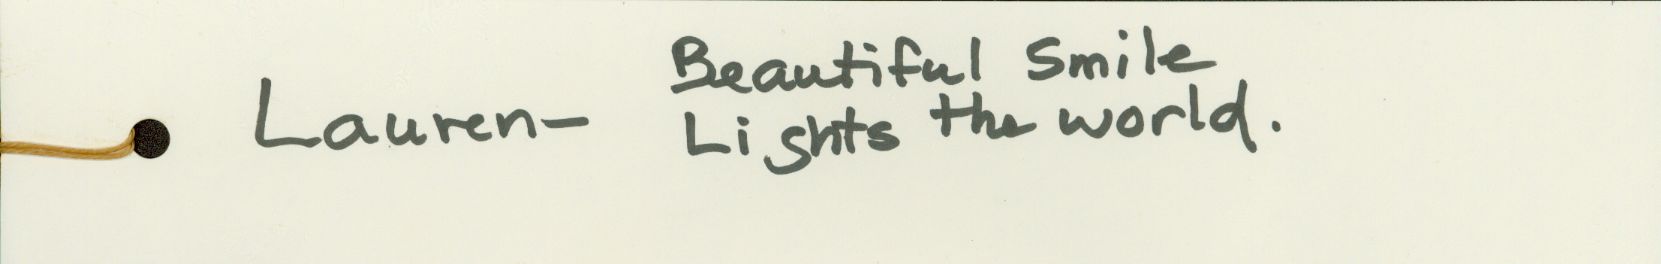 Lauren- Beautiful Smile
Lights the world.